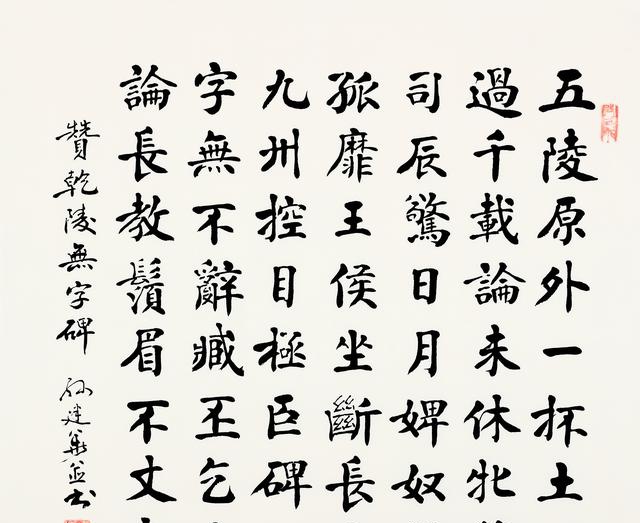 五陵原外一抔土
過千載論未休牝
司辰驚日月婢奴
孤靡王侯坐斷長
九州控目極巨碑
字無不辭臧丕乞
論長教鬚眉不丈
贊乾陵無字碑 孫建華並書